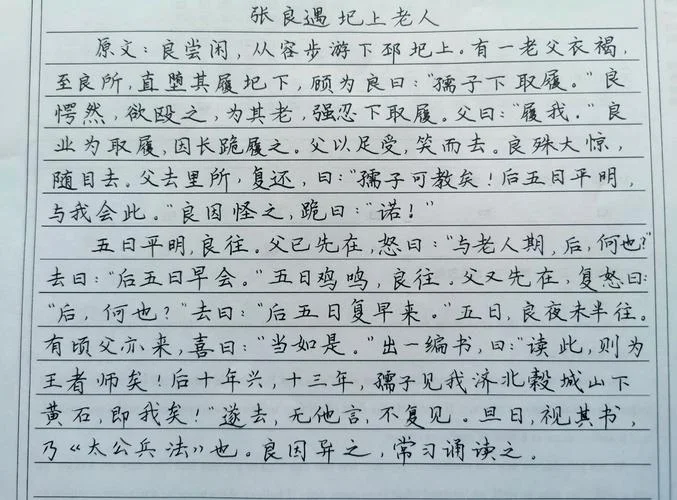 张良遇圯上老人
原文：良尝闲，从容步游下邳圯上。有一老父衣褐，
至良所，直堕其履圯下，顾为良曰："孺子下取履。"良
愕然，欲殴之，为其老，强忍下取履。父曰："履我."良
业为取履，因长跪履之。父以足受，笑而去。良殊大惊，
随目去。父去里所，复还，曰："孺子可教矣！后五日平明，
与我会此。"良因怪之，跪曰："诺！"
五日平明，良往。父已先在，怒曰："与老人期，后，何也？"
去曰："后五日早会。"五日鸡鸣，良往。父又先在，复怒曰：
"后，何也？"去曰："后五日复早来。"五日，良夜未半往。
有顷父亦来，喜曰："当如是。"出一编书，曰："读此，则为
王者师矣！后十年兴，十三年，孺子见我济北榖城山下
黄石，即我矣！"遂去，无他言，不复见。旦日，视其书，
乃《太公兵法》也。良因异之，常习诵读之。